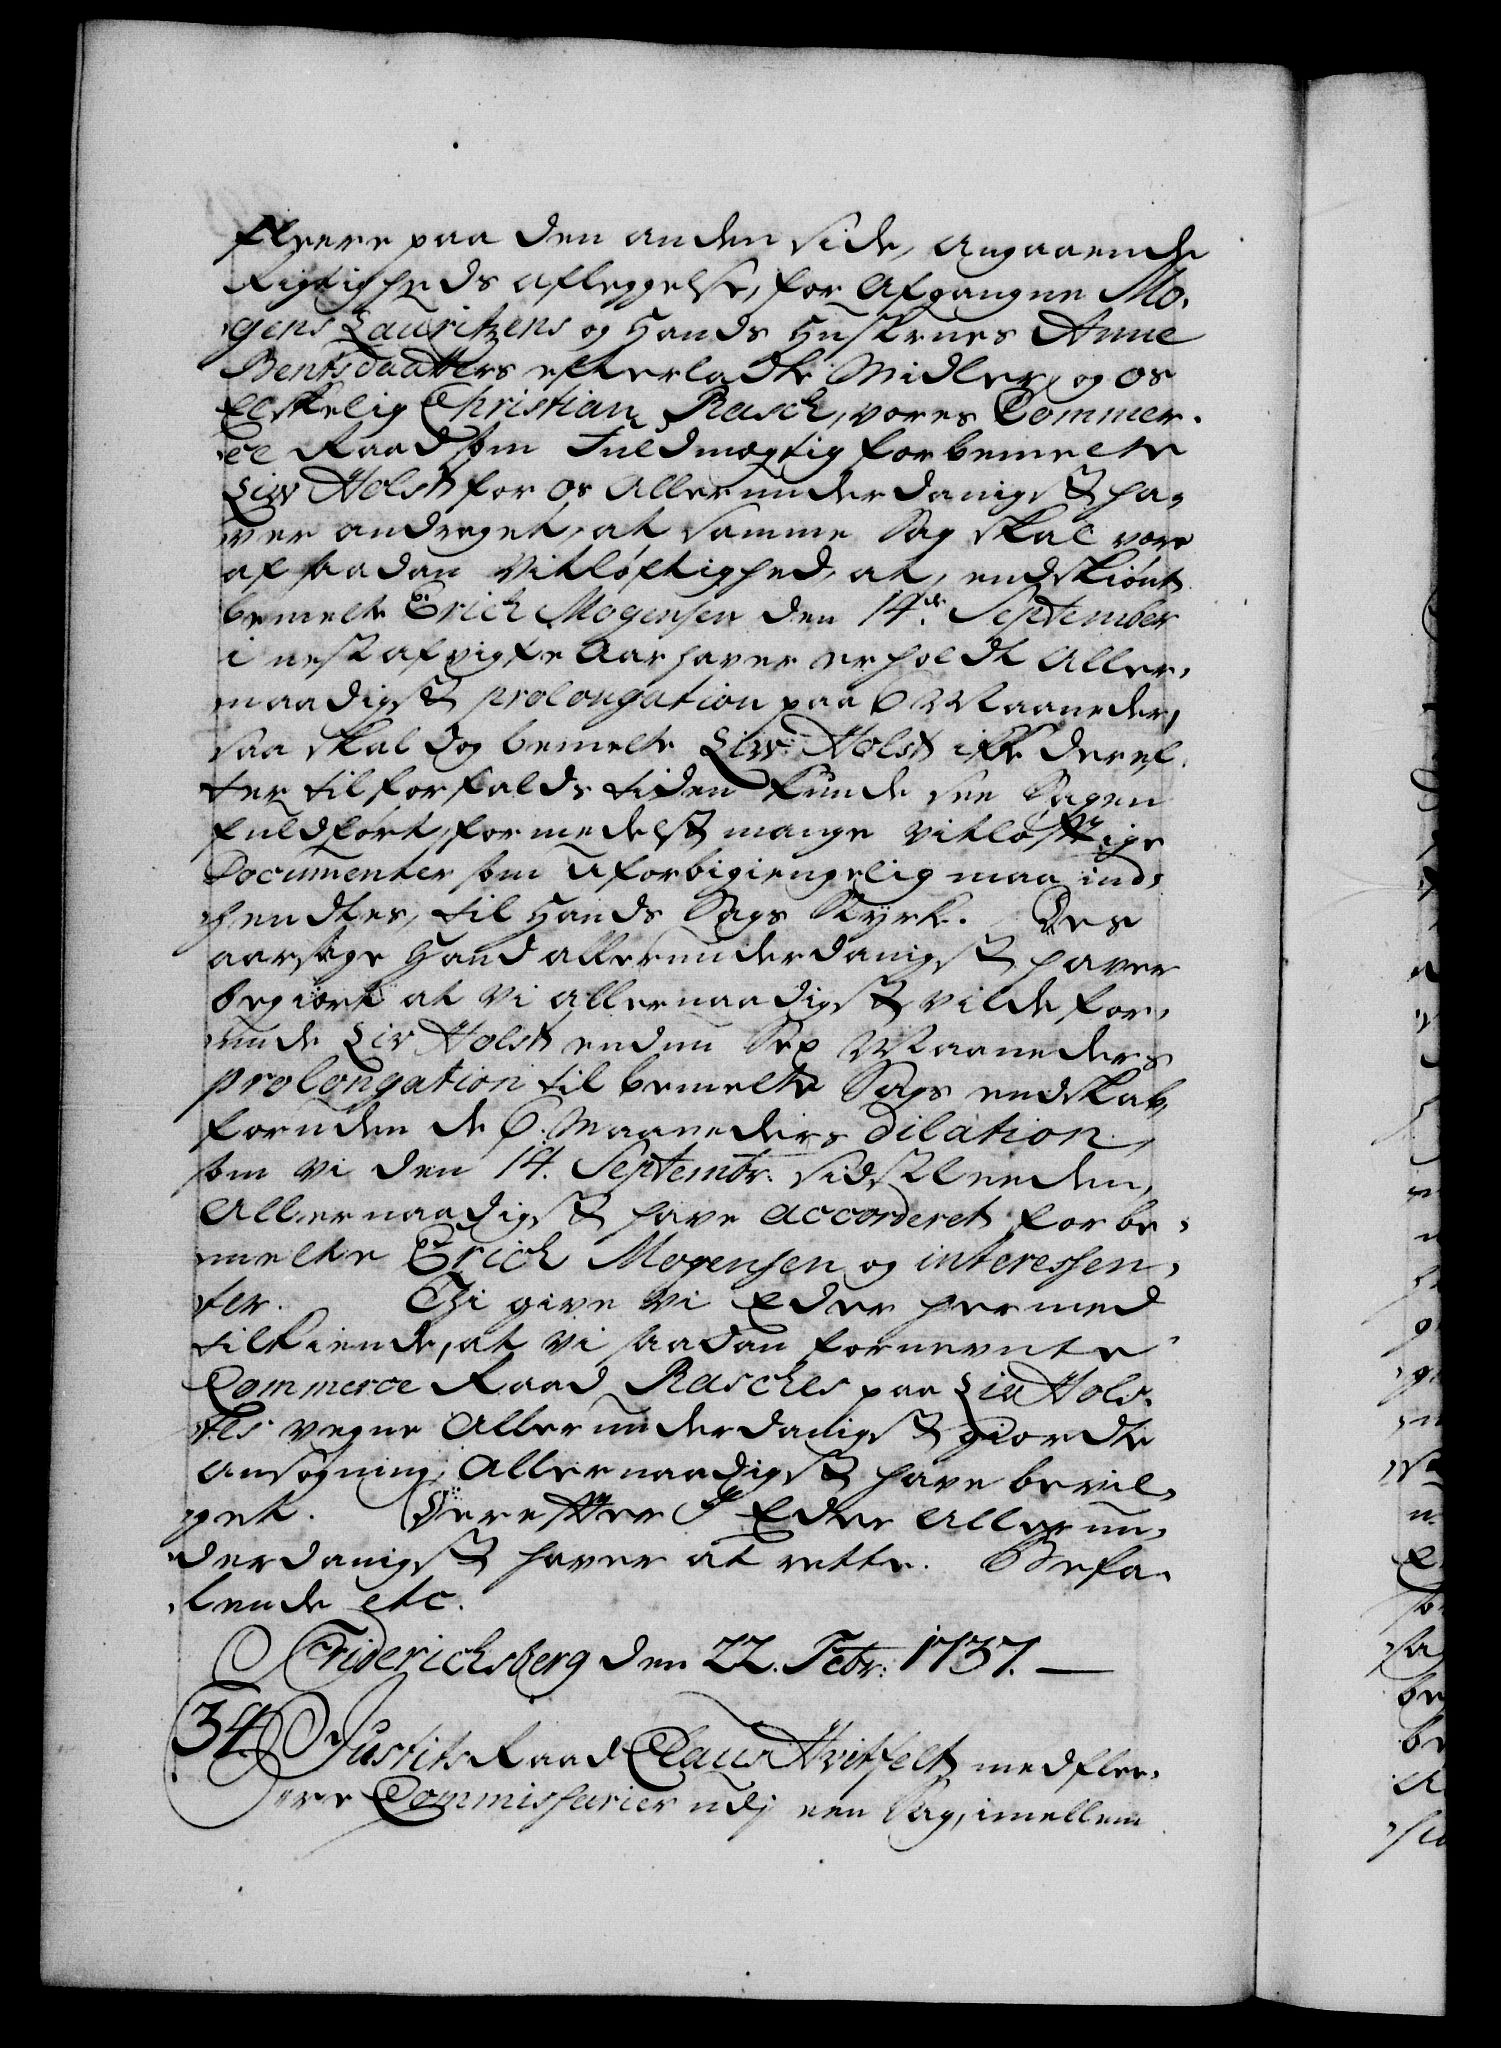 fleere paa den anden side, angaaende
Rigtigheds aflæggelse, for Afgangne Mo-
gens Lauritzens og Hands Hustrues Anne
Bentsdaatters efterladte Midler, og os
Elskelig Christian Rasch, vores Commer-
ce Raad som Fuldmægtig for bemelte
Liv Holst for os Allerunderdanigst ha-
ver andraget, at samme Sag skal være
af saadan Vitløftighed, at, endskiønt
bemelte Erich Mogensen den 14de September
i nest afvigte Aar haver erholdt Aller-
naadigst prolongation paa 6 Maaneder,
saa skal dog bemelte Liv Holst icke deref-
ter til forfalds tiden kunde see Sagen
fuldført, formedelst mange vitløftige
Documenter som uforbigiengelig maa ind-
hendtes, til Hands Sags Styrke. Des
aarsage Hand allerunderdanigst haver
begiært at Vi allernaadigst vilde for-
unde Liv Holst endnu Sex Maaneders
prolongation til bemelte Sags endskab,
foruden de 6. Maaneders dilation,
som Vi den 14. Septembr: sidstleeden,
Allernaadigst have accorderet forbe-
melte Erich Mogensen og interessen-
ter. Thi give Vi Eder hermed
tilkiende, at Vi saadan fornevnte
Commerce Raad Rasches paa Liv Hol-
stes vegne Allerunderdanigst giordte
Ansøgning, Allernaadigst have bevil-
get. Derefter I Eder Allerun-
derdanigst haver at rette. Befa-
lende etc.
Friderichsberg den 22. Febr: 1737.
34. Justits Raad Claus Hvitfelt med flee-
re Commissarier udj een Sag, imellem